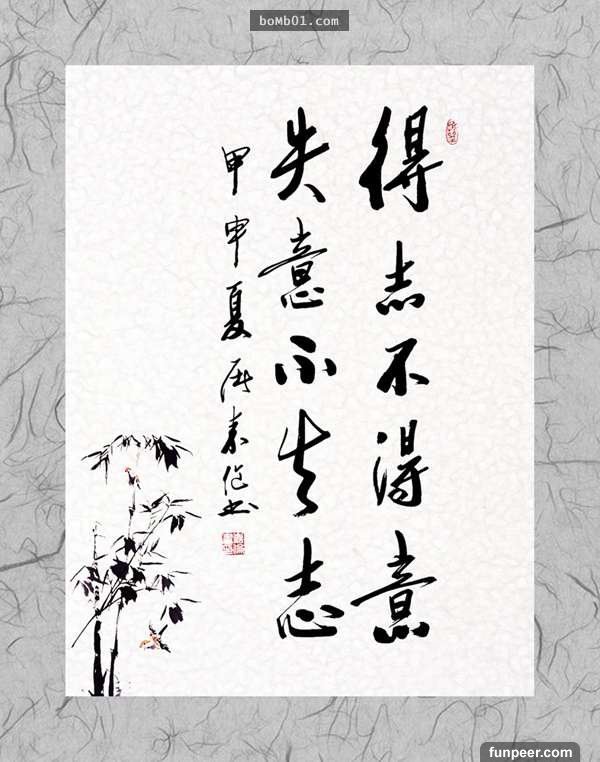 boMb01.com
得志不得意
失意不失志
甲申夏
funpeer.com